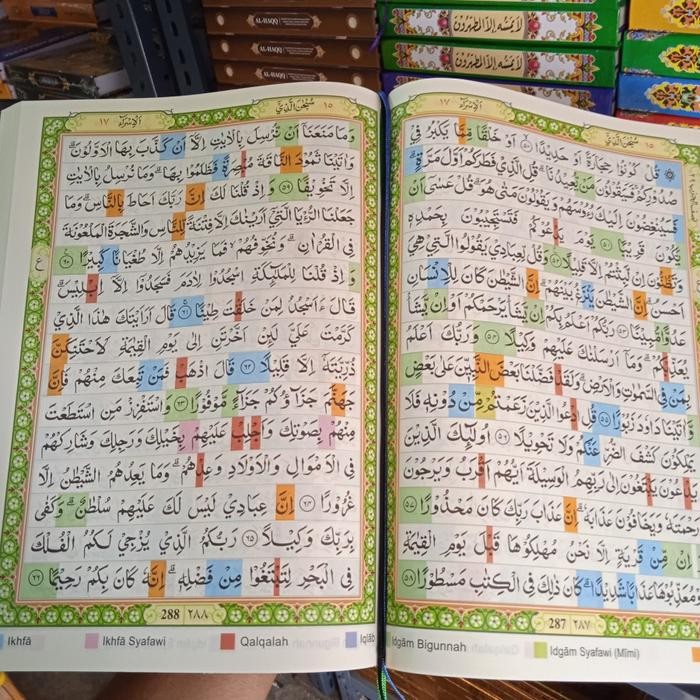 لَا يَمَسُّهُ إِلَّا الْمُطَهَّرُونَ
لَا يَمَسُّهُ إِلَّا الْمُطَهَّرُونَ
AL-HAQQ
AL-HAQQ
AL-HAQQ
١٥ سُبْحٰنَ الَّذِيْ
اَلْاِسْرَاۤء ١٧
قُلْ كُوْنُوْا حِجَارَةً اَوْ حَدِيْدًا ۙ ٥٠ اَوْ خَلْقًا مِّمَّا يَكْبُرُ فِيْ
صُدُوْرِكُمْ ۚ فَسَيَقُوْلُوْنَ مَنْ يُّعِيْدُنَا ۗ قُلِ الَّذِيْ فَطَرَكُمْ اَوَّلَ مَرَّةٍ ۚ
فَسَيُنْغِضُوْنَ اِلَيْكَ رُءُوْسَهُمْ وَيَقُوْلُوْنَ مَتٰى هُوَ ۗ قُلْ عَسٰٓى اَنْ
يَّكُوْنَ قَرِيْبًا ٥١ يَوْمَ يَدْعُوْكُمْ فَتَسْتَجِيْبُوْنَ بِحَمْدِهٖ
وَتَظُنُّوْنَ اِنْ لَّبِثْتُمْ اِلَّا قَلِيْلًا ٥٢ وَقُلْ لِّعِبَادِيْ يَقُوْلُوا الَّتِيْ هِيَ
اَحْسَنُ ۗ اِنَّ الشَّيْطٰنَ يَنْزَغُ بَيْنَهُمْ ۗ اِنَّ الشَّيْطٰنَ كَانَ لِلْاِنْسَانِ
عَدُوًّا مُّبِيْنًا ٥٣ رَبُّكُمْ اَعْلَمُ بِكُمْ ۗ اِنْ يَّشَأْ يَرْحَمْكُمْ اَوْ اِنْ يَّشَأْ
يُعَذِّبْكُمْ ۗ وَمَآ اَرْسَلْنٰكَ عَلَيْهِمْ وَكِيْلًا ٥٤ وَرَبُّكَ اَعْلَمُ
بِمَنْ فِى السَّمٰوٰتِ وَالْاَرْضِ ۗ وَلَقَدْ فَضَّلْنَا بَعْضَ النَّبِيّٖنَ عَلٰى بَعْضٍ
وَّاٰتَيْنَا دَاوٗدَ زَبُوْرًا ٥٥ قُلِ ادْعُوا الَّذِيْنَ زَعَمْتُمْ مِّنْ دُوْنِهٖ فَلَا
يَمْلِكُوْنَ كَشْفَ الضُّرِّ عَنْكُمْ وَلَا تَحْوِيْلًا ٥٦ اُولٰۤىِٕكَ الَّذِيْنَ
يَدْعُوْنَ يَبْتَغُوْنَ اِلٰى رَبِّهِمُ الْوَسِيْلَةَ اَيُّهُمْ اَقْرَبُ وَيَرْجُوْنَ
رَحْمَتَهٗ وَيَخَافُوْنَ عَذَابَهٗ ۗ اِنَّ عَذَابَ رَبِّكَ كَانَ مَحْذُوْرًا ٥٧
وَاِنْ مِّنْ قَرْيَةٍ اِلَّا نَحْنُ مُهْلِكُوْهَا قَبْلَ يَوْمِ الْقِيٰمَةِ
اَوْ مُعَذِّبُوْهَا عَذَابًا شَدِيْدًا ۗ كَانَ ذٰلِكَ فِى الْكِتٰبِ مَسْطُوْرًا ٥٨
287 ٢٨٧
Idgām Bigunnah
Idgām Syafawi (Mīmi)
١٥ سُبْحٰنَ الَّذِيْ
اَلْاِسْرَاۤء ١٧
وَمَا مَنَعَنَآ اَنْ نُّرْسِلَ بِالْاٰيٰتِ اِلَّآ اَنْ كَذَّبَ بِهَا الْاَوَّلُوْنَ ۗ
وَاٰتَيْنَا ثَمُوْدَ النَّاقَةَ مُبْصِرَةً فَظَلَمُوْا بِهَا ۗ وَمَا نُرْسِلُ بِالْاٰيٰتِ
اِلَّا تَخْوِيْفًا ٥٩ وَاِذْ قُلْنَا لَكَ اِنَّ رَبَّكَ اَحَاطَ بِالنَّاسِ ۗ وَمَا
جَعَلْنَا الرُّءْيَا الَّتِيْٓ اَرَيْنٰكَ اِلَّا فِتْنَةً لِّلنَّاسِ وَالشَّجَرَةَ الْمَلْعُوْنَةَ
فِى الْقُرْاٰنِ ۗ وَنُخَوِّفُهُمْ ۙ فَمَا يَزِيْدُهُمْ اِلَّا طُغْيَانًا كَبِيْرًا ٦٠
وَاِذْ قُلْنَا لِلْمَلٰۤىِٕكَةِ اسْجُدُوْا لِاٰدَمَ فَسَجَدُوْٓا اِلَّآ اِبْلِيْسَ ۗ
قَالَ ءَاَسْجُدُ لِمَنْ خَلَقْتَ طِيْنًا ۚ ٦١ قَالَ اَرَءَيْتَكَ هٰذَا الَّذِيْ
كَرَّمْتَ عَلَيَّ لَىِٕنْ اَخَّرْتَنِ اِلٰى يَوْمِ الْقِيٰمَةِ لَاَحْتَنِكَنَّ
ذُرِّيَّتَهٗٓ اِلَّا قَلِيْلًا ٦٢ قَالَ اذْهَبْ فَمَنْ تَبِعَكَ مِنْهُمْ فَاِنَّ
جَهَنَّمَ جَزَاۤؤُكُمْ جَزَاۤءً مَّوْفُوْرًا ٦٣ وَاسْتَفْزِزْ مَنِ اسْتَطَعْتَ
مِنْهُمْ بِصَوْتِكَ وَاَجْلِبْ عَلَيْهِمْ بِخَيْلِكَ وَرَجِلِكَ وَشَارِكْهُمْ
فِى الْاَمْوَالِ وَالْاَوْلَادِ وَعِدْهُمْ ۗ وَمَا يَعِدُهُمُ الشَّيْطٰنُ اِلَّا
غُرُوْرًا ٦٤ اِنَّ عِبَادِيْ لَيْسَ لَكَ عَلَيْهِمْ سُلْطٰنٌ ۗ وَكَفٰى
بِرَبِّكَ وَكِيْلًا ٦٥ رَبُّكُمُ الَّذِيْ يُزْجِيْ لَكُمُ الْفُلْكَ
فِى الْبَحْرِ لِتَبْتَغُوْا مِنْ فَضْلِهٖ ۗ اِنَّهٗ كَانَ بِكُمْ رَحِيْمًا ٦٦
ع
288 ٢٨٨
Ikhfā
Ikhfā Syafawi
Qalqalah
Iqlāb